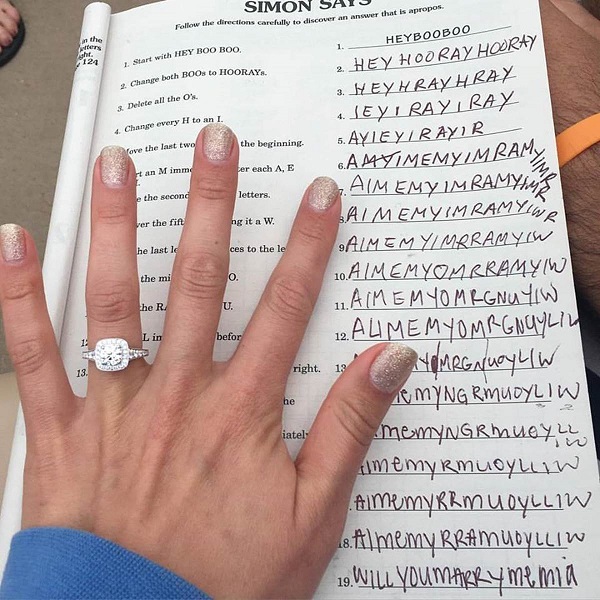 SIMON SAYS
Follow the directions carefully to discover an answer that is apropos.
in the
letters
ght.
124
1. Start with HEY BOO BOO.
2. Change both BOOs to HOORAYs.
3. Delete all the O's.
4. Change every H to an I.
ove the last two the beginning.
rt an M imme ter each A, E
e the secon letters.
ver the fift ng it a W.
he last le ces to the le
the mi O.
the RA U.
12 L in befor
13. right.
he
iately
1. HEYBOOBOO
2. HEY HOORAY HOORAY
3. HEYHRAYHRAY
4. IEYIRAYIRAY
5. AYIEYIRAYIR
6. AMYIMEMYIMRAMYIMR
7. AIMEMYIMRAMYIMR
8. AIMEMYIMRAMYIWR
9. AIMEMYIMRRAMYIW
10. AIMEMYOMRRAMYIW
11. AIMEMYOMRGNUYIW
12. ALIMEMYOMRGNUYLIW
YOMRGNUOYLIW
emyNGRMUOYLIW
imemyNGRmuoyLL
IW
imemyRmuoyLLIW
AimemyRRmuoyLLIW
18. AimemyRRAmuoyLLIW
19. WILLYOUMARRYmemia